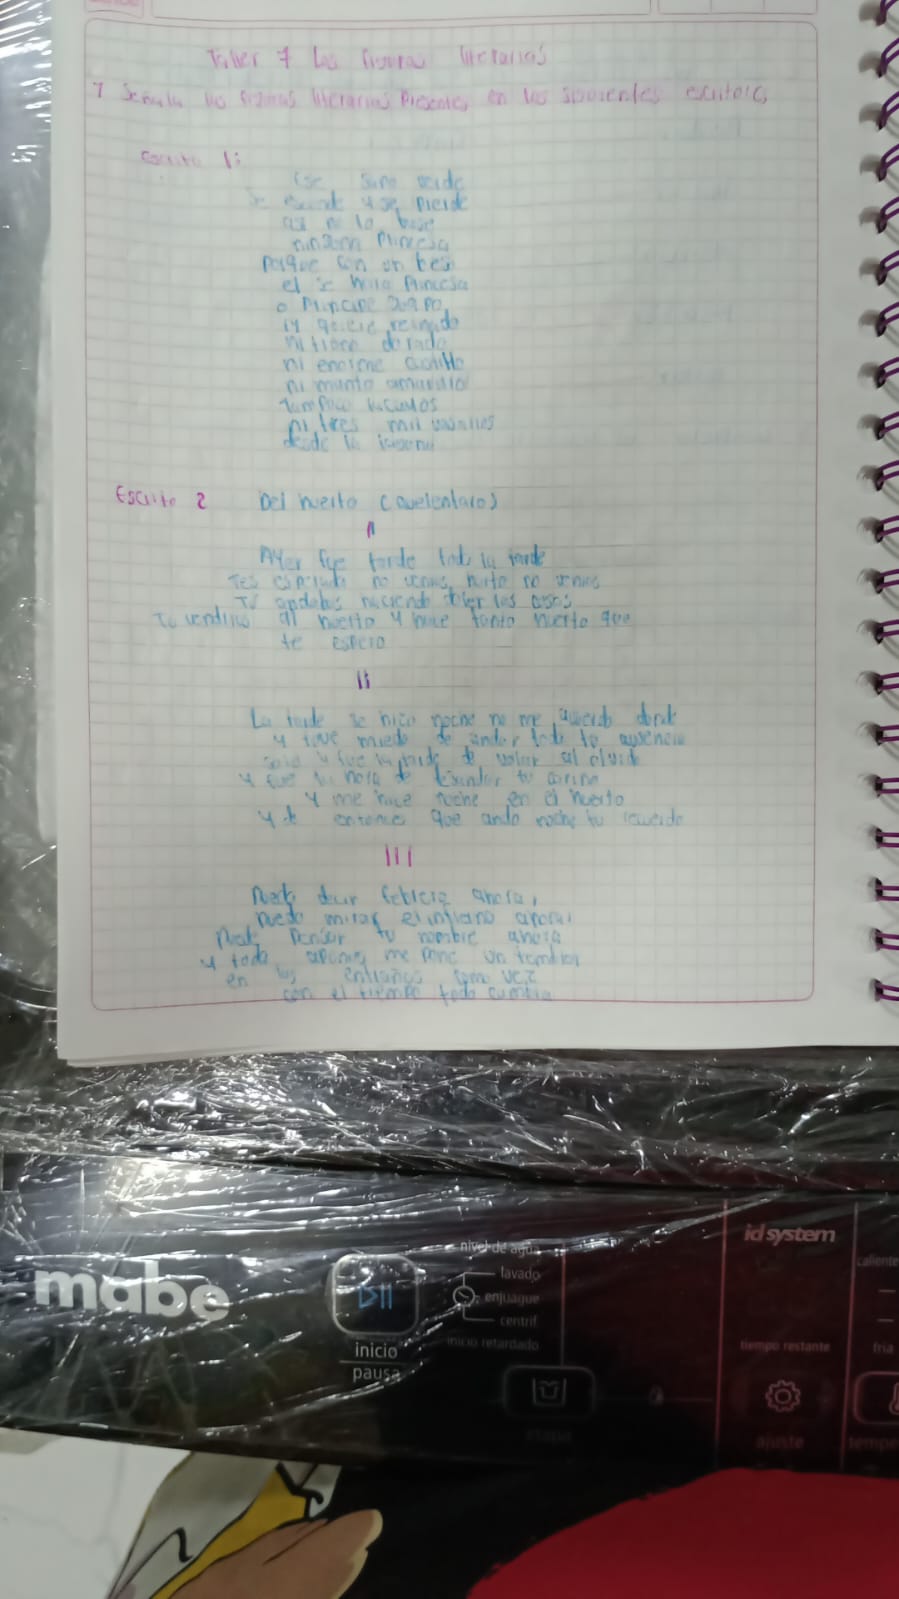 Taller 7 Las figuras literarias
1 Señala las figuras literarias Presentes en los siguientes escritos
escrito 1:
Ese sapo verde
se esconde y se pierde
asi no lo besa
ninguna Princesa
Porque con un beso
el se hara Princesa
o Principe guapo
iy quiere reinado
ni trono dorado
ni enorme castillo
ni manto amarillo
tampoco lacayos
ni tres mil vasallos
desde la
Escrito 2 Del huerto (avelentaro)
Ayer fue tarde toda la tarde
no venias, no venias
Tu andabas haciendo las cosas
al huerto y hace tanto huerto que
te espero
ii
La tarde se hizo noche no me acuerdo donde
y tuve miedo de andar todo tu ausencia
y fue la tarde de volar al olvido
y fue la hora de tu
y me hice noche en el huerto
y de entonces que ando noche tu recuerdo
iii
Puedo decir ahora,
Puedo mirar ahora,
Puedo Pensar tu nombre ahora
y toda me pone un temblor
en las entrañas como vez
con el tiempo todo cambia
mabe
inicio
pausa
nivel de agua
lavado
enjuague
centrif.
inicio retardado
id system
tiempo restante
ajuste
caliente
fria